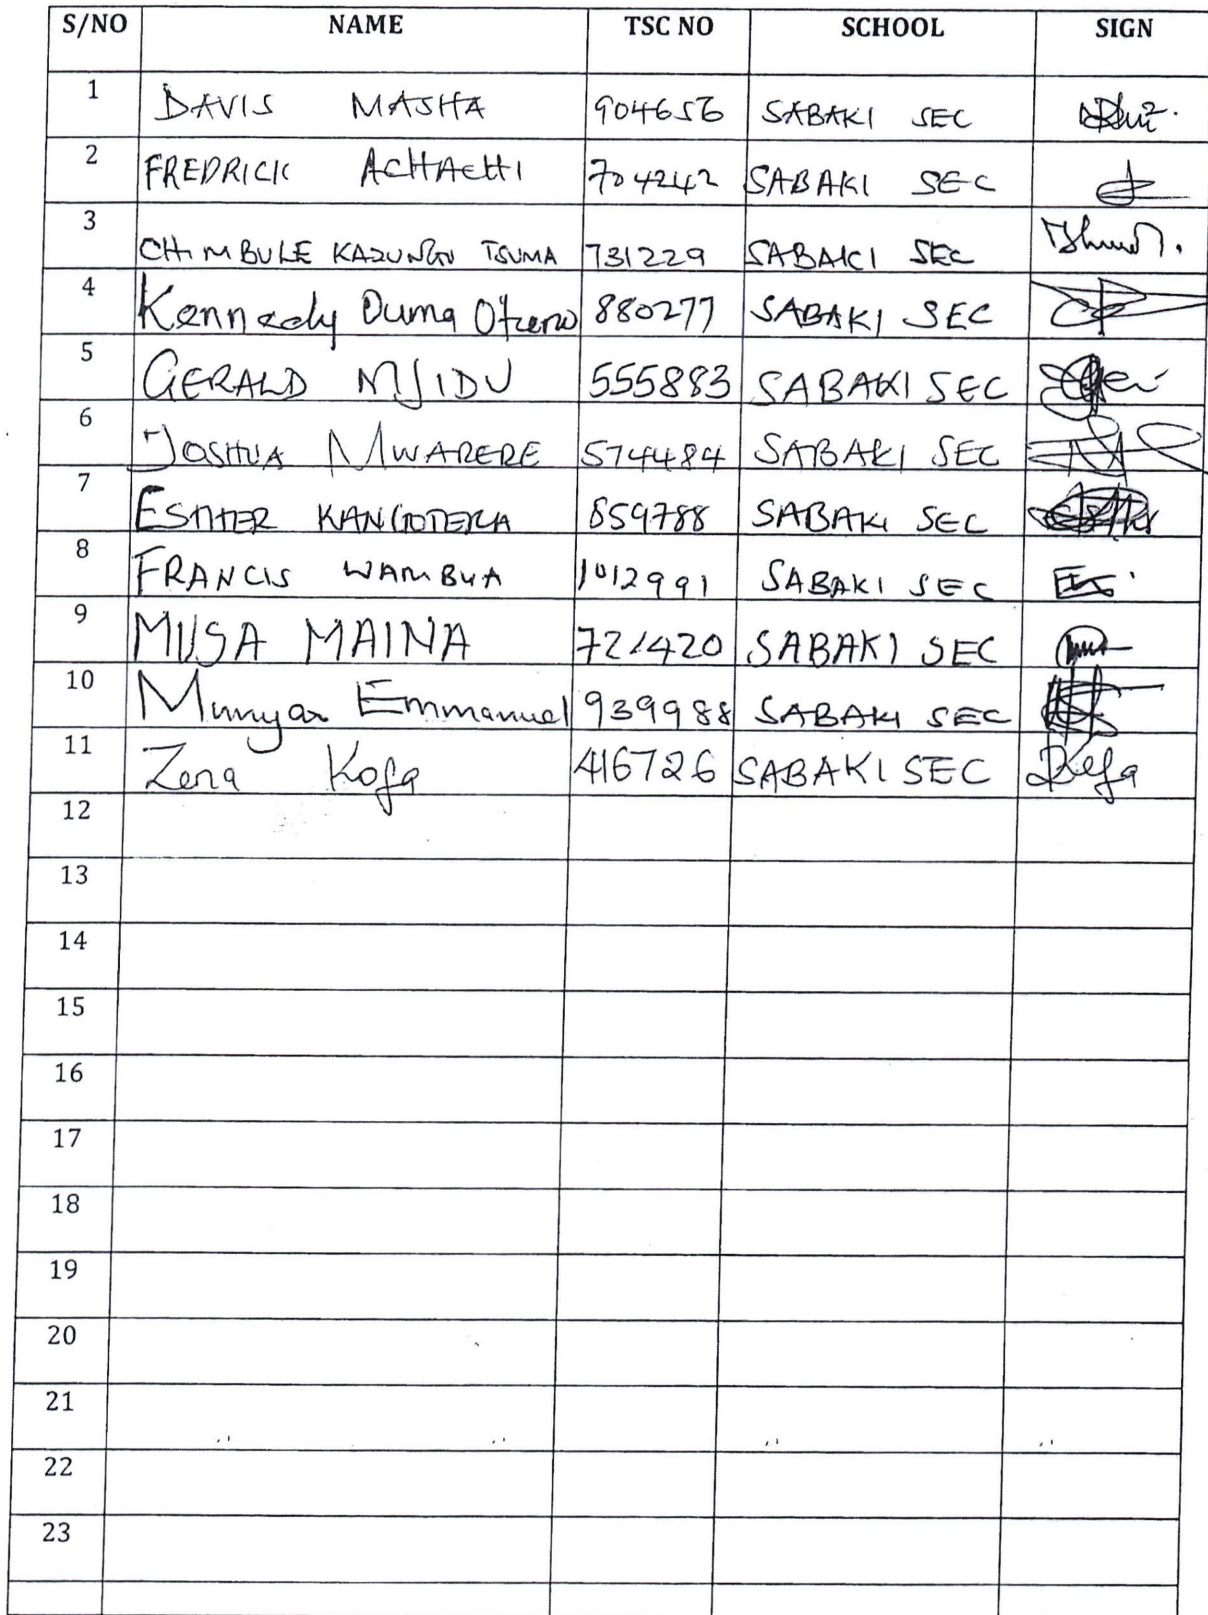 S/NO NAME TSC NO SCHOOL SIGN
1 DAVIS MASHA 904656 SABAKI SEC
2 FREDRICK ACHACHI 704242 SABAKI SEC
3 CHIMBULE KAZUNGU TSUMA 731229 SABAKI SEC
4 Kennedy Ouma Otieno 880277 SABAKI SEC
5 GERALD MJIDU 555883 SABAKI SEC
6 JOSHUA MWARERE 574484 SABAKI SEC
7 ESTHER 859788 SABAKI SEC
8 FRANCIS WAMBUA 1012991 SABAKI SEC
9 MUSA MAINA 721420 SABAKI SEC
10 Emmanuel 939988 SABAKI SEC
11 Zena Kofa 416726 SABAKI SEC Kofa
12
13
14
15
16
17
18
19
20
21
22
23